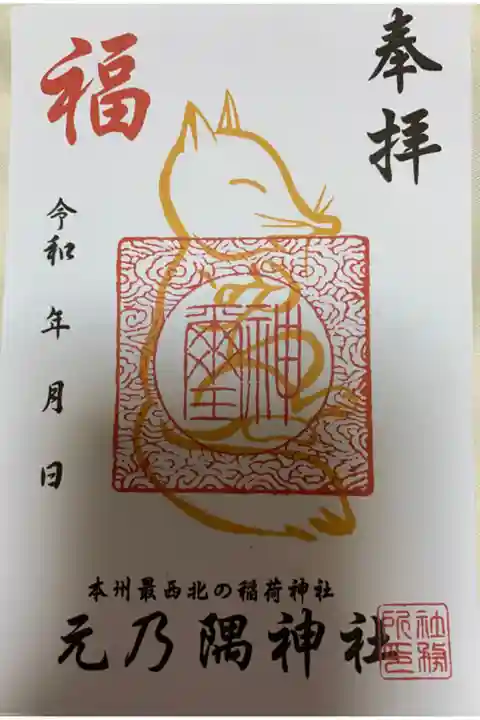 奉拝
福
神璽
令和 年 月 日
本州最西北の稲荷神社
元乃隅神社
社務所印